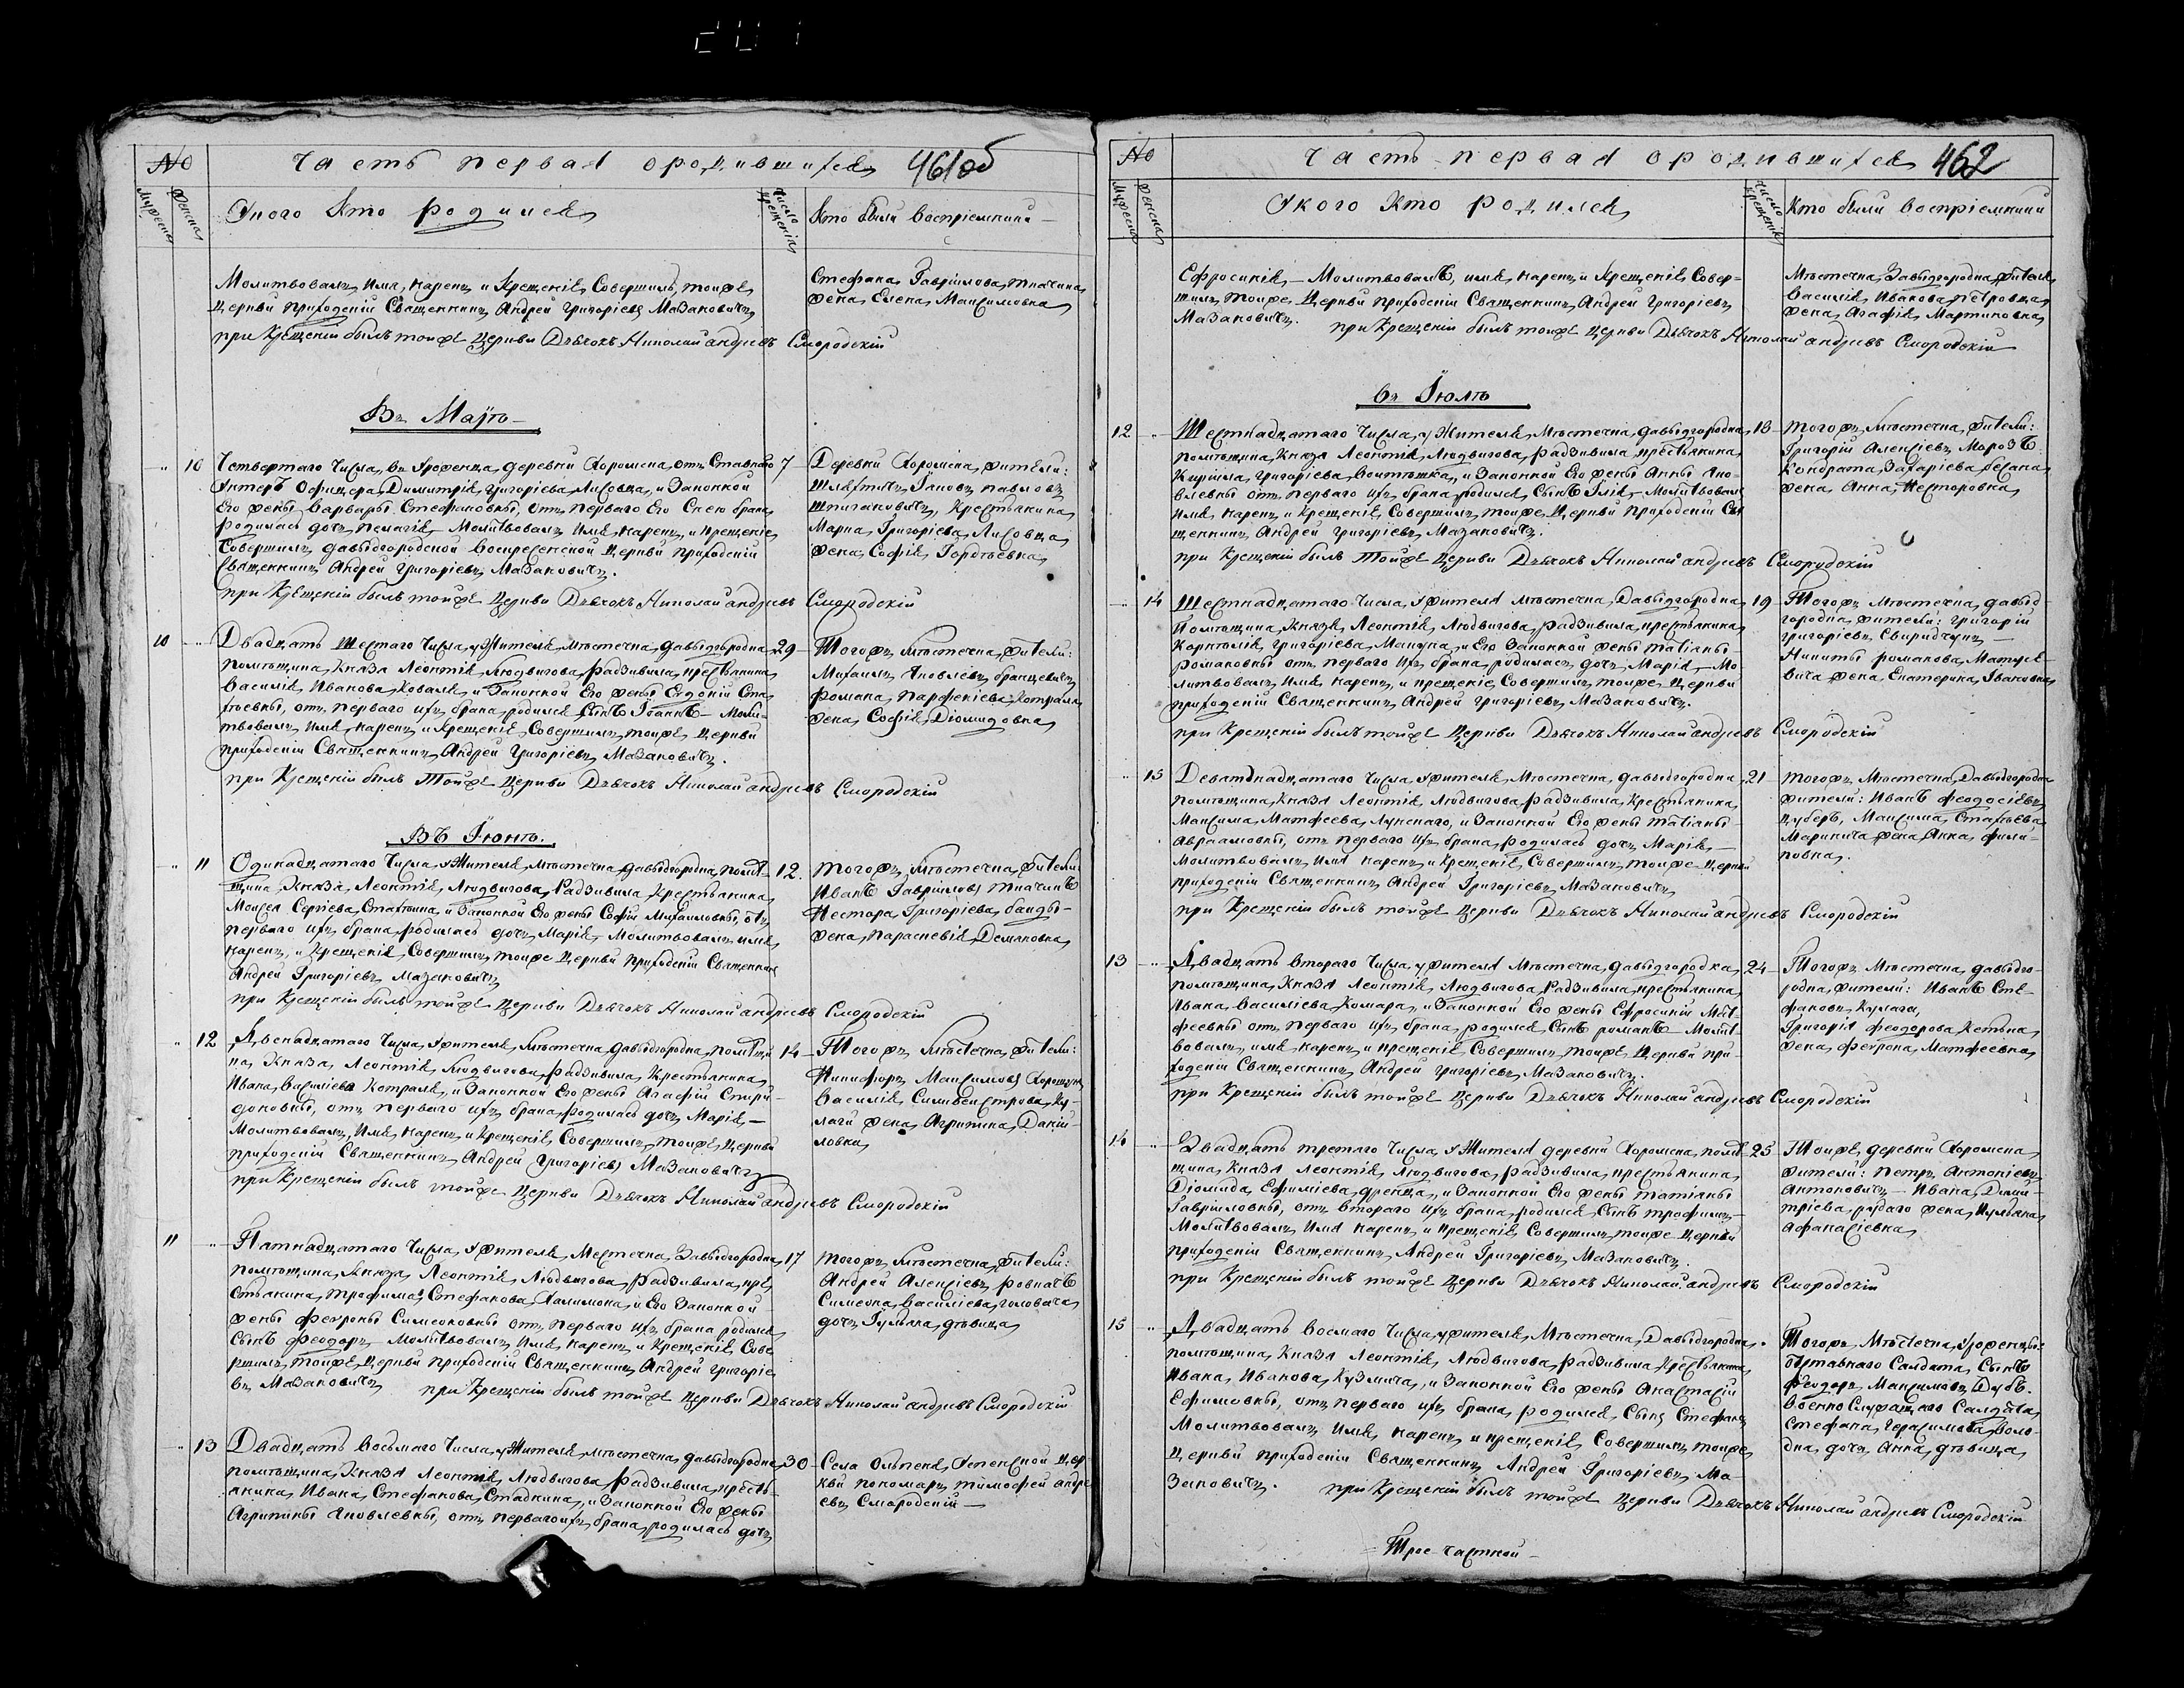 № Часть первая ородившихся 461об
Мужеска Женска
Укого Кто родился
Число Крещенія
Кто были Воспріемники
Молитвовалъ, Имя, нарекъ и Крещеніе Совершилъ, тойже
Церкви Приходскій Священникъ Андрей Григоріевъ Мазановичъ
при Крещеніи былъ тойже Церкви Дьячокъ Николай андреевъ Смородскій
Стефана Гаврилова, ткачика
жена Елена Максимовна
Въ Маіѣ
10 Четвертаго Числа, въ уроженца, деревни Хоромска, отъ Ставнаго 7
Унтеръ Офицера, Димитрія, Григоріева, Лисовца, и Законной
Его жены Варвары Стефановны, отъ перваго Его Сиею брака
родилась дочь, пелагія Молитвовалъ Имя, Нарекъ, и Крещеніе
Совершилъ, давыдгородской воскресенской Церкви приходскій
Священникъ Андрей Григоріевъ, Мазановичъ.
при Крещеніи былъ тойже Церкви Дьячокъ Николай андреевъ Смородскій
Деревни Хоромска, жители:
Шляхтичъ, Іаковъ, павловъ
Шпигановичъ, Крестьянина
Марка, Григоріева, Лисовца
жена, Софія, Гордѣевна
10 Двадцать Шестаго Числа, у Жителя, мѣстечка, давыдгородка, 29
помѣщика, Князя Леонтія, Людвигова, Радзивила, крестьянина
Василія, Иванова, Коваля, и Законной Его жены Евдокіи Ста
тѣевны, отъ перваго ихъ, брака, родился, Сынъ Іоаннъ – Моли-
твовалъ, Имя, нарекъ, и Крещеніе, Совершилъ, тойже, Церкви
приходскій Священникъ, Андрей Григоріевъ, Мазановичъ.
при Крещеніи былъ Тойже Церкви Дьячокъ Николай андреевъ Смородскій
Тогожъ, мѣстечка, жители:
Михаилъ, Яковлевъ, бранцевичъ
Романа, Парфеніева, Котраля
жена, Софія, Діомидовна
Въ Іюнѣ.
11 Одинадцатаго Числа, у Жителя, мѣстечка, давыдгородка, помѣ- 12.
щика, Князя, Леонтія, Людвигова, Радзивила, Крестьянина
Моисея Сергіева, Статкика, и Законной Его жены Софіи Михаиловны, отъ
перваго ихъ, брака, родилась дочь, Марія, Молитвовалъ имя
нарекъ, и Крещеніе, Совершилъ, тойже Церкви Приходскій Священникъ
Андрей Григоріевъ, Мазановичъ
при Крещеніи былъ тойже Церкви Дьячокъ Николай андреевъ Смородскій
тогожъ, мѣстечка, жители
Иванъ Гавриловъ, ткачикъ
Нестора, Григоріева, банды-
жена, Параскевія, Демяновна
12 Двенадцатаго Числа, у жителя, мѣстечка, давыдгородка, помѣщи 14
ка, Князя, Леонтія, Людвигова, Радзивила, Крестьянина
Ивана, Василіева Котраля, и Законной Его жены Агафіи Спири-
доновны, отъ перваго ихъ, брака, родилась дочь, Марія,
Молитвовалъ, Имя, нарекъ и Крещеніе, Совершилъ, тойже, Церкви
приходскій Священникъ, Андрей Григоріевъ Мазановичъ
при Крещеніи былъ тойже Церкви Дьячокъ Николай андреевъ Смородскій
Тогожъ мѣстечка, жители:
Никифоръ, Максимовъ Хорощунъ
Василія, Силивестрова, Ку-
лаги жена, Агрипина, Даніи-
ловна
11 Патнадцатаго Числа, у жителя, Местечка, Давыдгородка, 17
помѣщика, Князя, Леонтія, Людвигова, Радзивила, кре
Стьянина, Трофима, Стефанова, Халимона, и Его Законной
жены Февроны Симеоновны отъ перваго ихъ, брака родился
Сынъ Феодоръ, Молитвовалъ, Имя, нарекъ, и Крещеніе, Сове
ршилъ, тойже, Церкви приходскій Священникъ, Андрей Григоріе
въ Мазановичъ при Крещеніи былъ тойже Церкви Дьячокъ Николай андреевъ Смородскій
тогожъ, мѣстечка, жители:
Андрей Алексіевъ, ровначъ
Симеона, Василіева, головача
дочь Гульяна, дѣвица
13 Двадцать Восьмаго Числа, у Жителя, мѣстечка, давыдгородка, 30
помѣщика, Князя Леонтія, Людвигова, Радзивила, кресть-
янина, Ивана, Стефанова, Стадника, и Законной Его жены
Агрипины Яковлевны, отъ перваго ихъ, брака, родилась дочь
Села Ольпена, Успенской Цер
кви пономарь, тимофей андре
евъ, Смородскій
№ Часть первая ородившихся 462
Мужеска Женска
Укого Кто родился
Число Крещенія
Кто были Воспріемники
Ефросинія – Молитвовалъ, имя, нарекъ, и Крещеніе Совер-
шилъ, тойже, Церкви приходскій Священникъ, Андрей Григоріевъ
Мазановичъ. при Крещеніи былъ тойже Церкви Дьячокъ Николай андреевъ Смородскій
Мѣстечка, Давыдгородка, жителя
Василія, Иванова, Петровца
жена, Агафія, Мартиновна
въ Іюлѣ
12 Шестнадцатаго Числа, у Жителя, Мѣстечка, давыдгородка, 18
помѣщика, Князя Леонтія, Людвигова, Радзивила, крестьянина
Кирилла, Григоріева, Воитѣшка, и Законной Его жены Анны Яко-
влевны отъ перваго ихъ, брака, родился, Сынъ Ілія – Молитвовалъ
Имя, нарекъ и Крещеніе, Совершилъ, тойже, Церкви приходскій Свя
щенникъ, Андрей Григоріевъ, Мазановичъ.
при Крещеніи былъ Тойже Церкви Дьячокъ Николай андреевъ Смородскій
тогожъ, мѣстечка, жители:
Григорій Алексіевъ, Морозъ
Кондрата, Захаріева,
жена, Анна, Несторовна
14 Шестнадцатаго Числа, у жителя мѣстечка, Давыдгородка, 19
Помѣщика, Князя, Леонтія, Людвигова, Радзивила, крестьянина
Корнилія, Григоріева, Манцка, и Его Законной жены татіаны
романовны отъ перваго ихъ, брака, родилась, дочь, Марія – Мо-
литвовалъ, Имя, нарекъ, и крещеніе, Совершилъ, тойже, Церкви
приходскій Священникъ, Андрей Григоріевъ, Мазановичъ.
при Крещеніи былъ тойже Церкви Дьячокъ Николай андреевъ Смородскій
Тогожъ, мѣстечка, давыд-
городка, жители: Григорій
Григоріевъ, Свиридчукъ,
Никиты романова, Матусе-
вича жена, Екатерина, Івановна
15 Девятнадцатаго Числа, у жителя, мѣстечка, давыдгородка, 21
помѣщика, Князя Леонтія, Людвигова, Радзивила, Крестьянина
Максима, Матфеева, Лунскаго, и Законной Его жены татіаны
авраамовны, отъ перваго ихъ, брака, родилась дочь, Марія, –
Молитвовалъ, Имя нарекъ, и Крещеніе, Совершилъ, тойже Церкви
приходскій Священникъ Андрей Григоріевъ Мазановичъ
при Крещеніи былъ тойже Церкви Дьячокъ Николай андреевъ Смородскій
тогожъ, мѣстечка, Давыдгородка
жители: Иванъ Феодосіевъ
Цуберъ, Максима, Статѣева
Маринича жена, Анна, фили-
повна.
13 Двадцать втораго Числа, у жителя мѣстечка, давыдгородка, 24
помѣщика, Князя Леонтія, Людвигова, Радзивила, крестьянина
Ивана, Василіева, Комара, и Законной Его жены Ефросиніи Мат-
феевны отъ перваго ихъ, брака, родился, Сынъ романъ – Молит-
вовалъ, имя, нарекъ, и крещеніе, Совершилъ, тойже, Церкви при-
ходскій Священникъ Андрей Григоріевъ, Мазановичъ.
при Крещеніи былъ тойже Церкви Дьячокъ Николай андреевъ Смородскій
Тогожъ, Мѣстечка, давыдго-
родка, жители: Иванъ Сте-
фановъ, Кулага,
Григорія Феодорова, Кетька
жена, феврона, Матфеевна
14 Двадцать третаго Числа, у Жителя деревни Хоромска, помѣ 25
щика, Князя Леонтія, Людвигова, Радзивила, крестьянина
Діомида, Ефиміева, френца, и Законной Его жены татіаны
Гавриловны, отъ Втораго ихъ, брака, родился, Сынъ трофимъ –
Молитвовалъ, Имя нарекъ, и Крещеніе, Совершилъ, тойже Церкви
приходскій Священникъ, Андрей Григоріевъ, Мазановичъ.
при Крещеніи былъ тойже Церкви Дьячокъ Николай андреевъ Смородскій
Тойже, деревни Хоромска
жители: Петръ, Антоніевъ
Антоновичъ – Ивана, Дими-
тріева, рудаго жена, Иульяна
афанасіевна
15 Двадцать Восмаго Числа, у жителя, Мѣстечка, Давыдгородка.
помѣщика, Князя Леонтія, Людвигова, Радзивила, Крестьянина
Ивана, Иванова, Кузмича, и Законной Его жены Анастасіи
Ефимовны, отъ перваго ихъ, брака, родился, Сынъ Стефанъ
Молитвовалъ, Имя, нарекъ, и крещеніе, Совершилъ, тойже
Церкви приходскій Священникъ Андрей Григоріевъ, Ма-
зановичъ. при Крещеніи былъ тойже Церкви Дьячокъ Николай андреевъ Смородскій
Тогожъ Мѣстечка, уроженцы:
отставнаго Салдата, Сынъ
Феодоръ, Максимовъ, Дубъ.
Военно Служащаго Салдата
Стефана, Герасимова, Воло-
дка, дочь, Анна, дѣвица